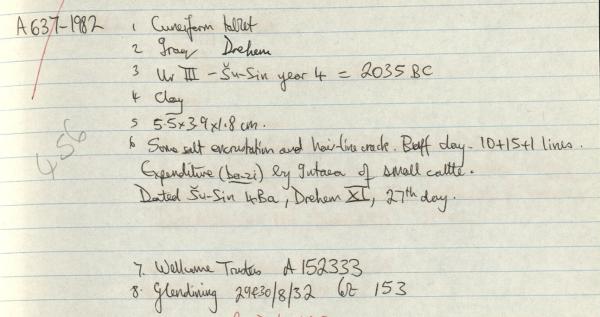 A637-1982
1 Cuneiform tablet
2 Iraq Drehem
3 Ur III - Šu-Sin year 4 = 2035 BC
4 Clay
5 5.5x3.9x1.8 cm.
6 Some salt encrustation and hair-line crack. Buff clay. 10+15+1 lines.
Expenditure (ba-zi) by Intaea of small cattle.
Dated Šu-Sin 4Ba, Drehem XI, 27th day.
456
7. Wellcome Trustees A152333
8. Glendining 29&30/8/32 lot 153